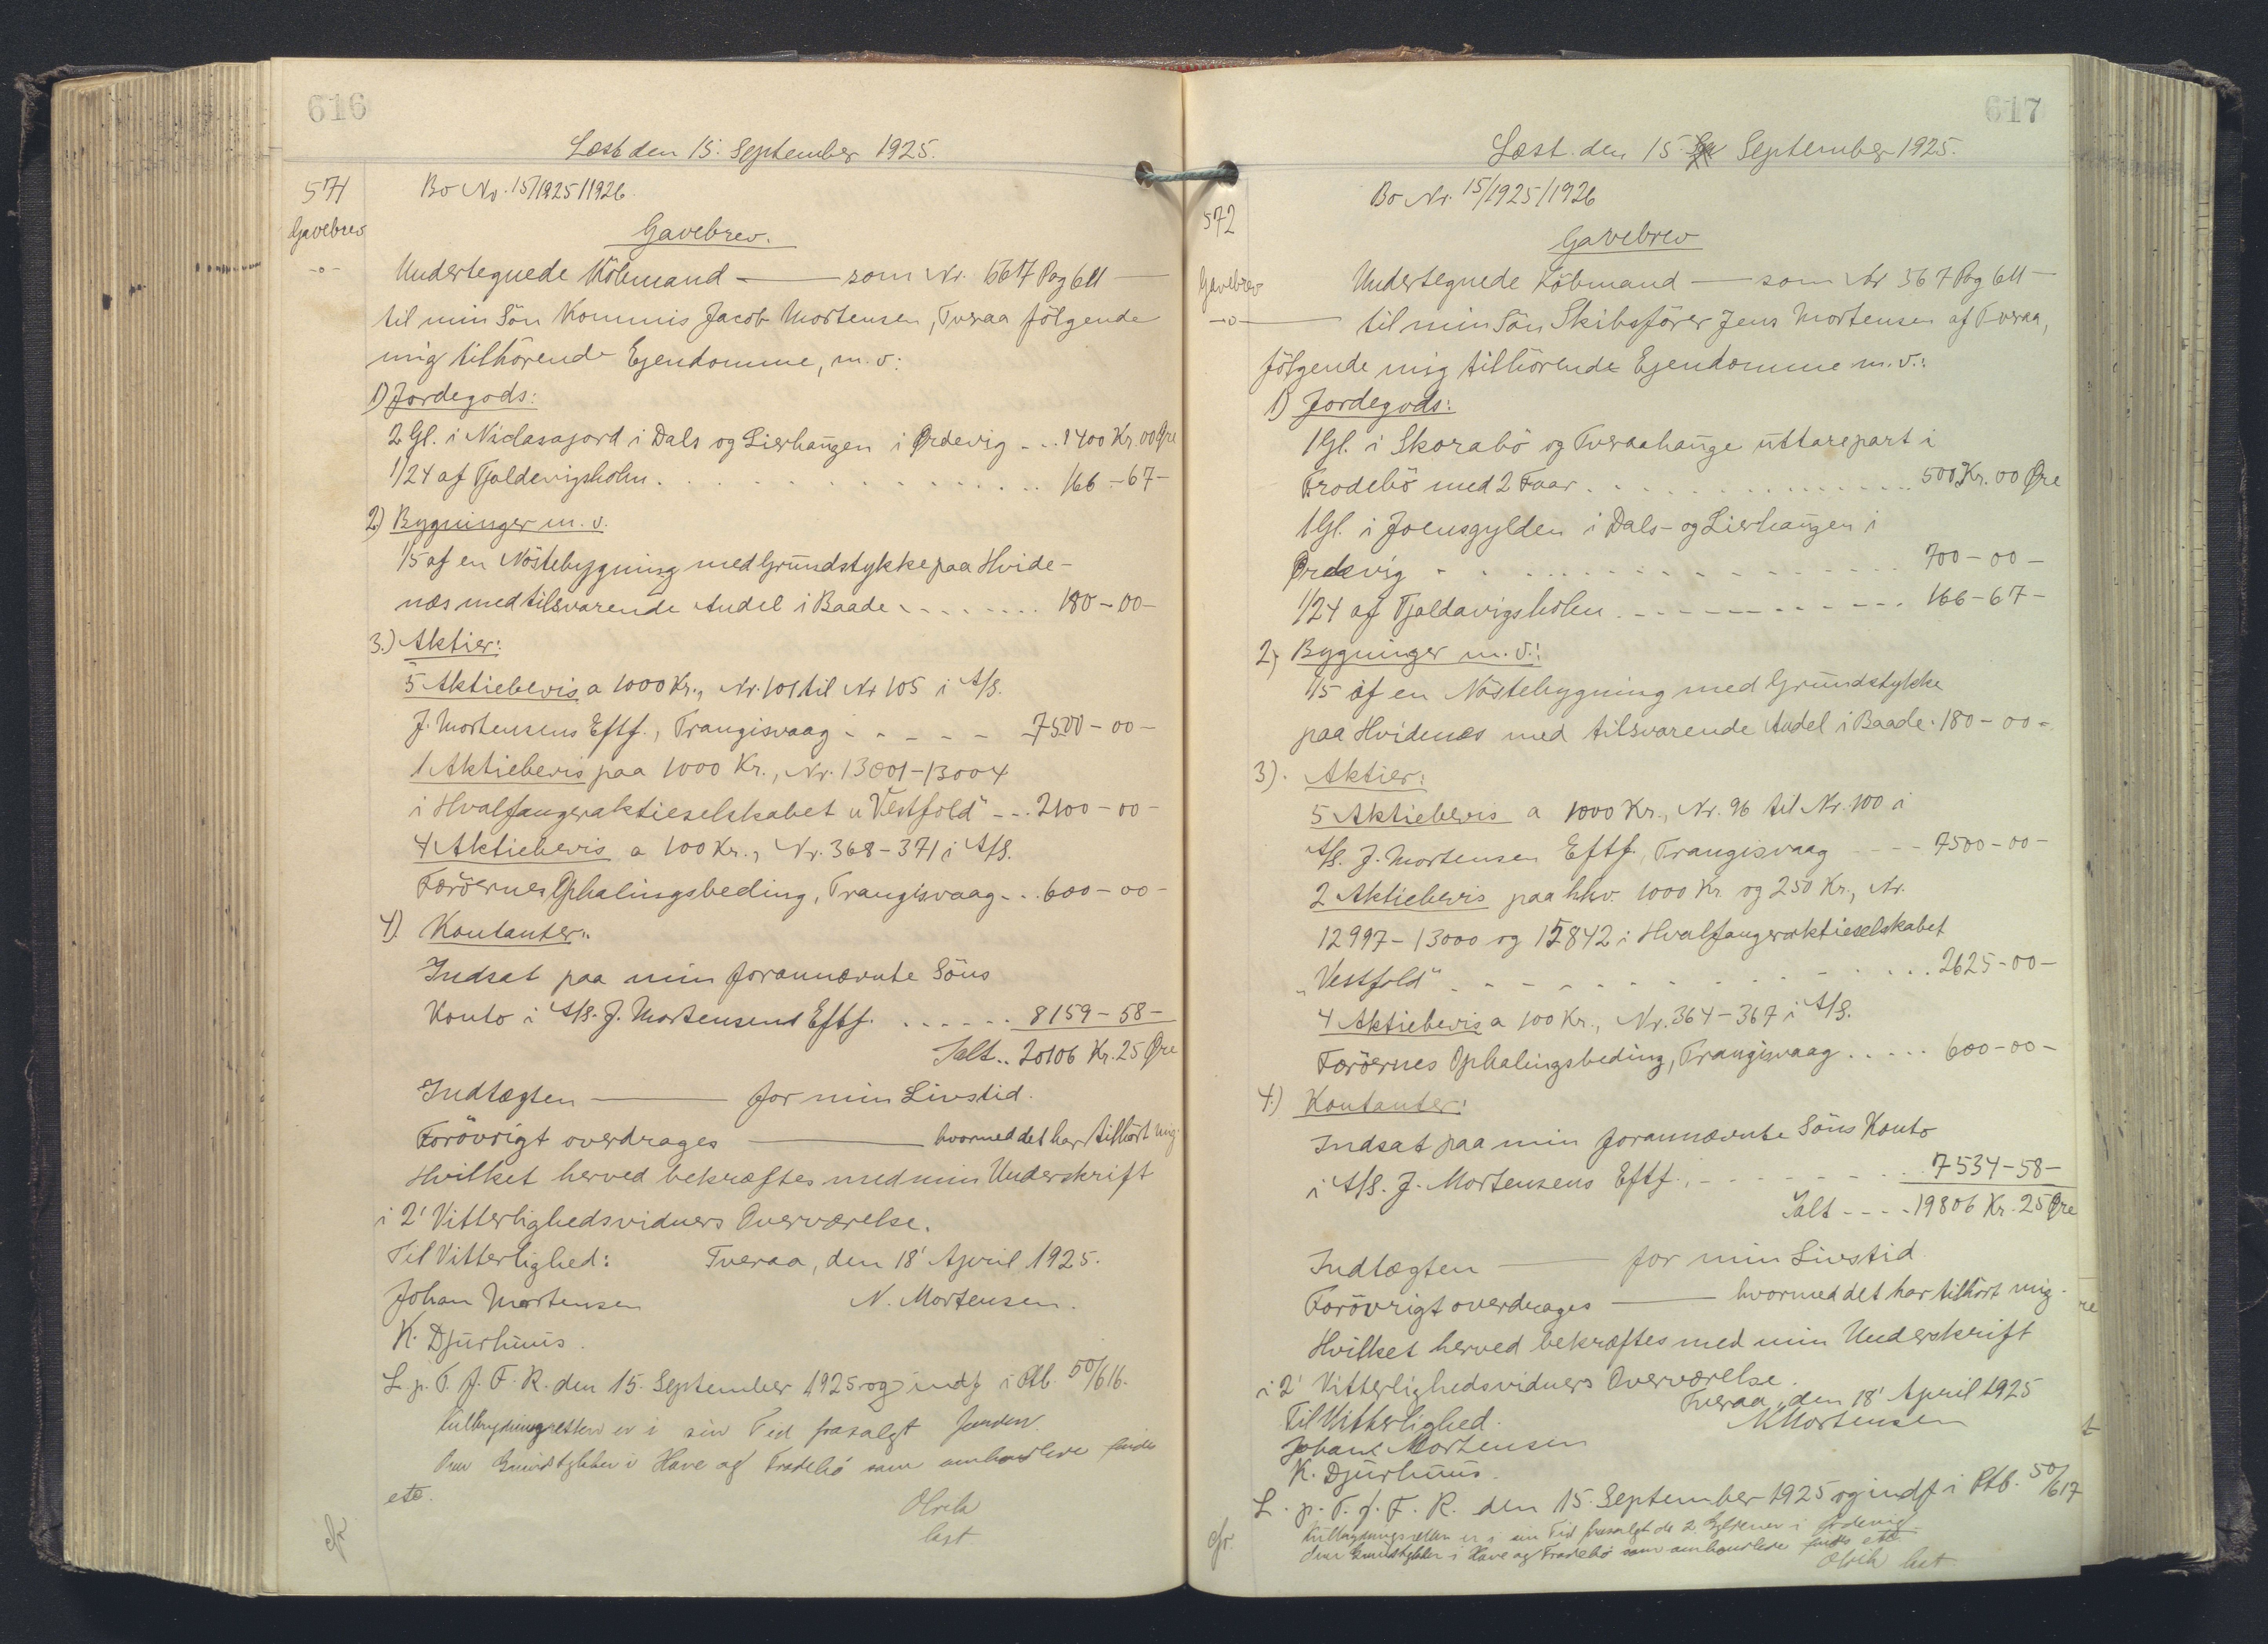 616
Læst den 15. September 1925.
571
Gavebrev
-o-
Bo Nr. 15/1925/1926.
Gavebrev.
Undertegnede Köbmand — som Nr. 567 Pag 611 —
til min Sön Kommis Jacob Mortensen, Tveraa fölgende
mig tilhörende Ejendomme, m.v:
1) Jordegods:
2 Gl. i Niclasajord i Dals og Lierhaugen i Ørdevig - - . 1400 Kr. 00 Øre
1/24 af Tjaldevigsholm . . . . . 166 - 67 -
2) Bygninger m.v.
1/5 af en Nöstebygning med Grundstykke paa Hvide-
næs med tilsvarende Andel i Baade . . . . . 180 - 00 -
3.) Aktier:
5 Aktiebevis a 1000 Kr., Nr. 101 til Nr 105 i A/S.
J. Mortensens Eftf., Trangisvaag - - - - - 7500 - 00 -
1 Aktiebevis paa 1000 Kr., Nr. 13001-13004
i Hvalfangeraktieselskabet "Vestfold" - - . 2100 - 00 -
4 Aktiebevis a 100 Kr., Nr. 368-371 i A/S.
Færöernes Ophalingsbeding, Trangisvaag . . . 600 - 00 -
4) Kontanter:
Indsat paa min forannævnte Söns
Konto i A/S. J. Mortensens Eftf. . . . . . . 8159 - 58 -
Ialt . . 20106 Kr. 25 Øre
Indtægten — for min Livstid.
Forövrigt overdrages — hvormed det har tilhört mig.
Hvilket herved bekræftes med min Underskrift
i 2' Vitterlighedsvidners Overværelse.
Til Vitterlighed: Tveraa, den 18' April 1925.
Johan Mortensen N. Mortensen.
K. Djurhuus.
L. p. T. f. F. R. den 15. September 1925 og indf i Ptb. 50/616.
Kulbrydningsretten er i sin Tid frasalgt Jorden.
Paa Grundstykker i Have og Frodebö som omhandlede findes
etc.
Olrik
cst
cfr
617
Læst. den 15. September 1925.
572
Gavebrev
-o-
Bo Nr. 15/1925/1926
Gavebrev
Undertegnede Köbmand — som Nr 567 Pag 611 —
— til min Sön Skibsförer Jens Mortensen af Tveraa,
fölgende mig tilhörende Ejendomme m.v.:
1) Jordegods:
1 Gl. i Skorabö og Tveraahauge uttarepart i
Frodebö med 2 Faar . . . . . 500 Kr. 00 Øre
1 Gl. i Joensgylden i Dals- og Lierhaugen i
Ørdevig - . . . . . 700 - 00 -
1/24 af Tjaldavigsholm . - - - - - 166 - 67 -
2) Bygninger m.v.:
1/5 af en Nöstebygning med Grundstykke
paa Hvidenæs med tilsvarende Andel i Baade . 180 - 00 -
3). Aktier:
5 Aktiebevis a 1000 Kr., Nr. 96 til Nr. 100 i
A/S. J. Mortensen Eftf., Trangisvaag - - - - 7500 - 00 -
2 Aktiebevis paa hhv. 1000 Kr. og 250 Kr., Nr.
12997-13000 og 15842 i Hvalfangeraktieselskabet
"Vestfold" . - - - - - . . . 2625 - 00 -
4 Aktiebevis a 100 Kr., Nr. 364-367 i A/S.
Færöernes Ophalingsbeding, Trangisvaag . . . . . 600 - 00 -
4.) Kontanter:
Indsat paa min forannævnte Söns Konto
i A/S. J. Mortensens Eftf., - - - - - 7534 - 58 -
Ialt - - - - 19806 Kr. 25 Øre
Indtægten — for min Livstid
Forövrigt overdrages — hvormed det har tilhört mig.
Hvilket herved bekræftes med min Underskrift
i 2' Vitterlighedsvidners Overværelse.
Tveraa, den 18' April 1925
Til Vitterlighed. N Mortensen
Johan Mortensen
K. Djurhuus.
L. p. T. f. F. R. den 15. September 1925 og indf i Ptb. 50/617
Kulbrydningsretten er i sin Tid frasalgt de 2 Gyldener i Ördevig
Paa Grundstykker i Have og Frodebö som omhandlede findes etc.
Olrik cst
cfr.